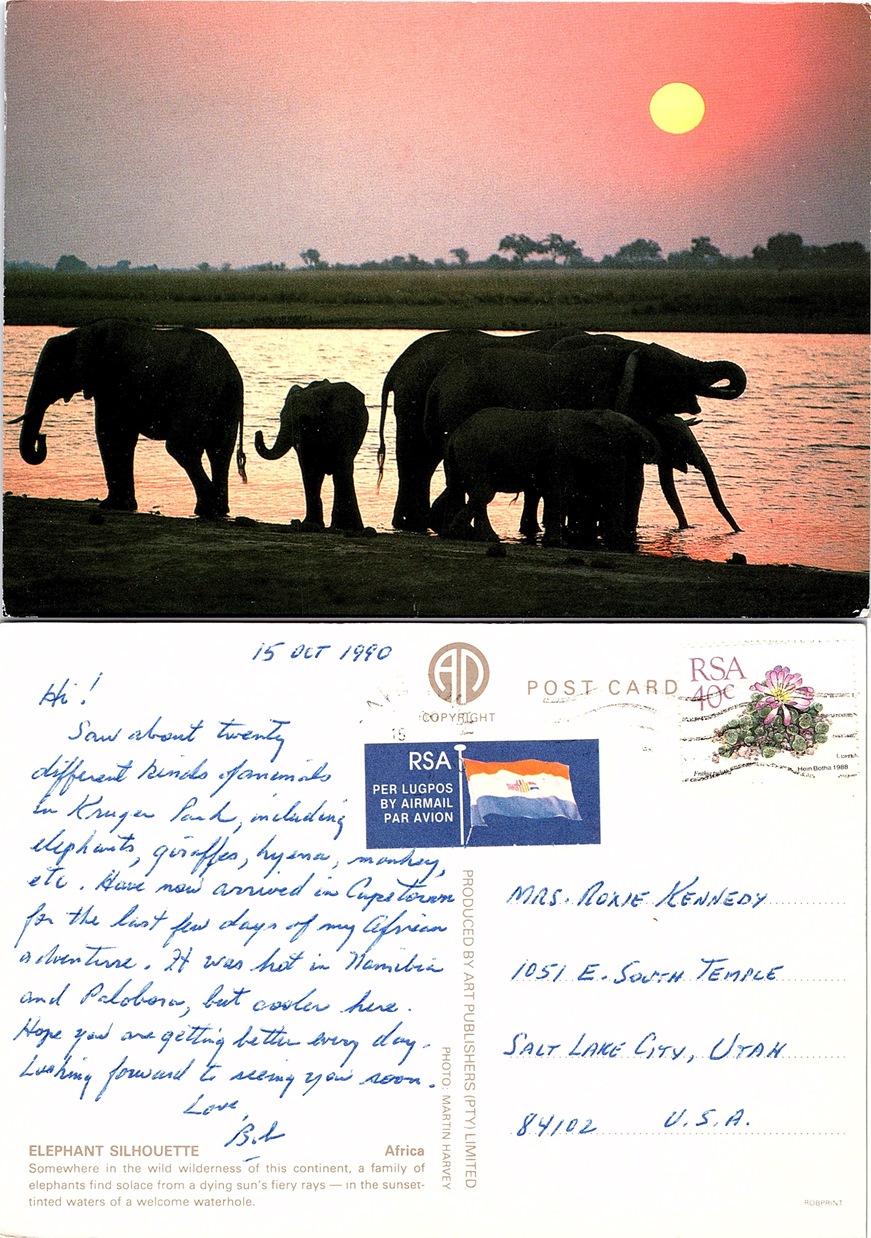 15 OCT 1990
Hi!
Saw about twenty
different kinds of animals
in Kruger Park, including
elephants, giraffes, hyena, monkey,
etc. Have now arrived in Capetown
for the last few days of my African
adventure. It was hot in Namibia
and Palobora, but cooler here.
Hope you are getting better every day.
Looking forward to seeing you soon.
Love,
Bob
ELEPHANT SILHOUETTE Africa
Somewhere in the wild wilderness of this continent, a family of
elephants find solace from a dying sun's fiery rays — in the sunset-
tinted waters of a welcome waterhole.
COPYRIGHT
POST CARD
15
RSA
PER LUGPOS
BY AIRMAIL
PAR AVION
PRODUCED BY ART PUBLISHERS (PTY) LIMITED
PHOTO: MARTIN HARVEY
RSA
40c
Hein Botha 1988
MRS. ROXIE KENNEDY
1051 E. SOUTH TEMPLE
SALT LAKE CITY, UTAH
84102 U.S.A.
ROBPRINT